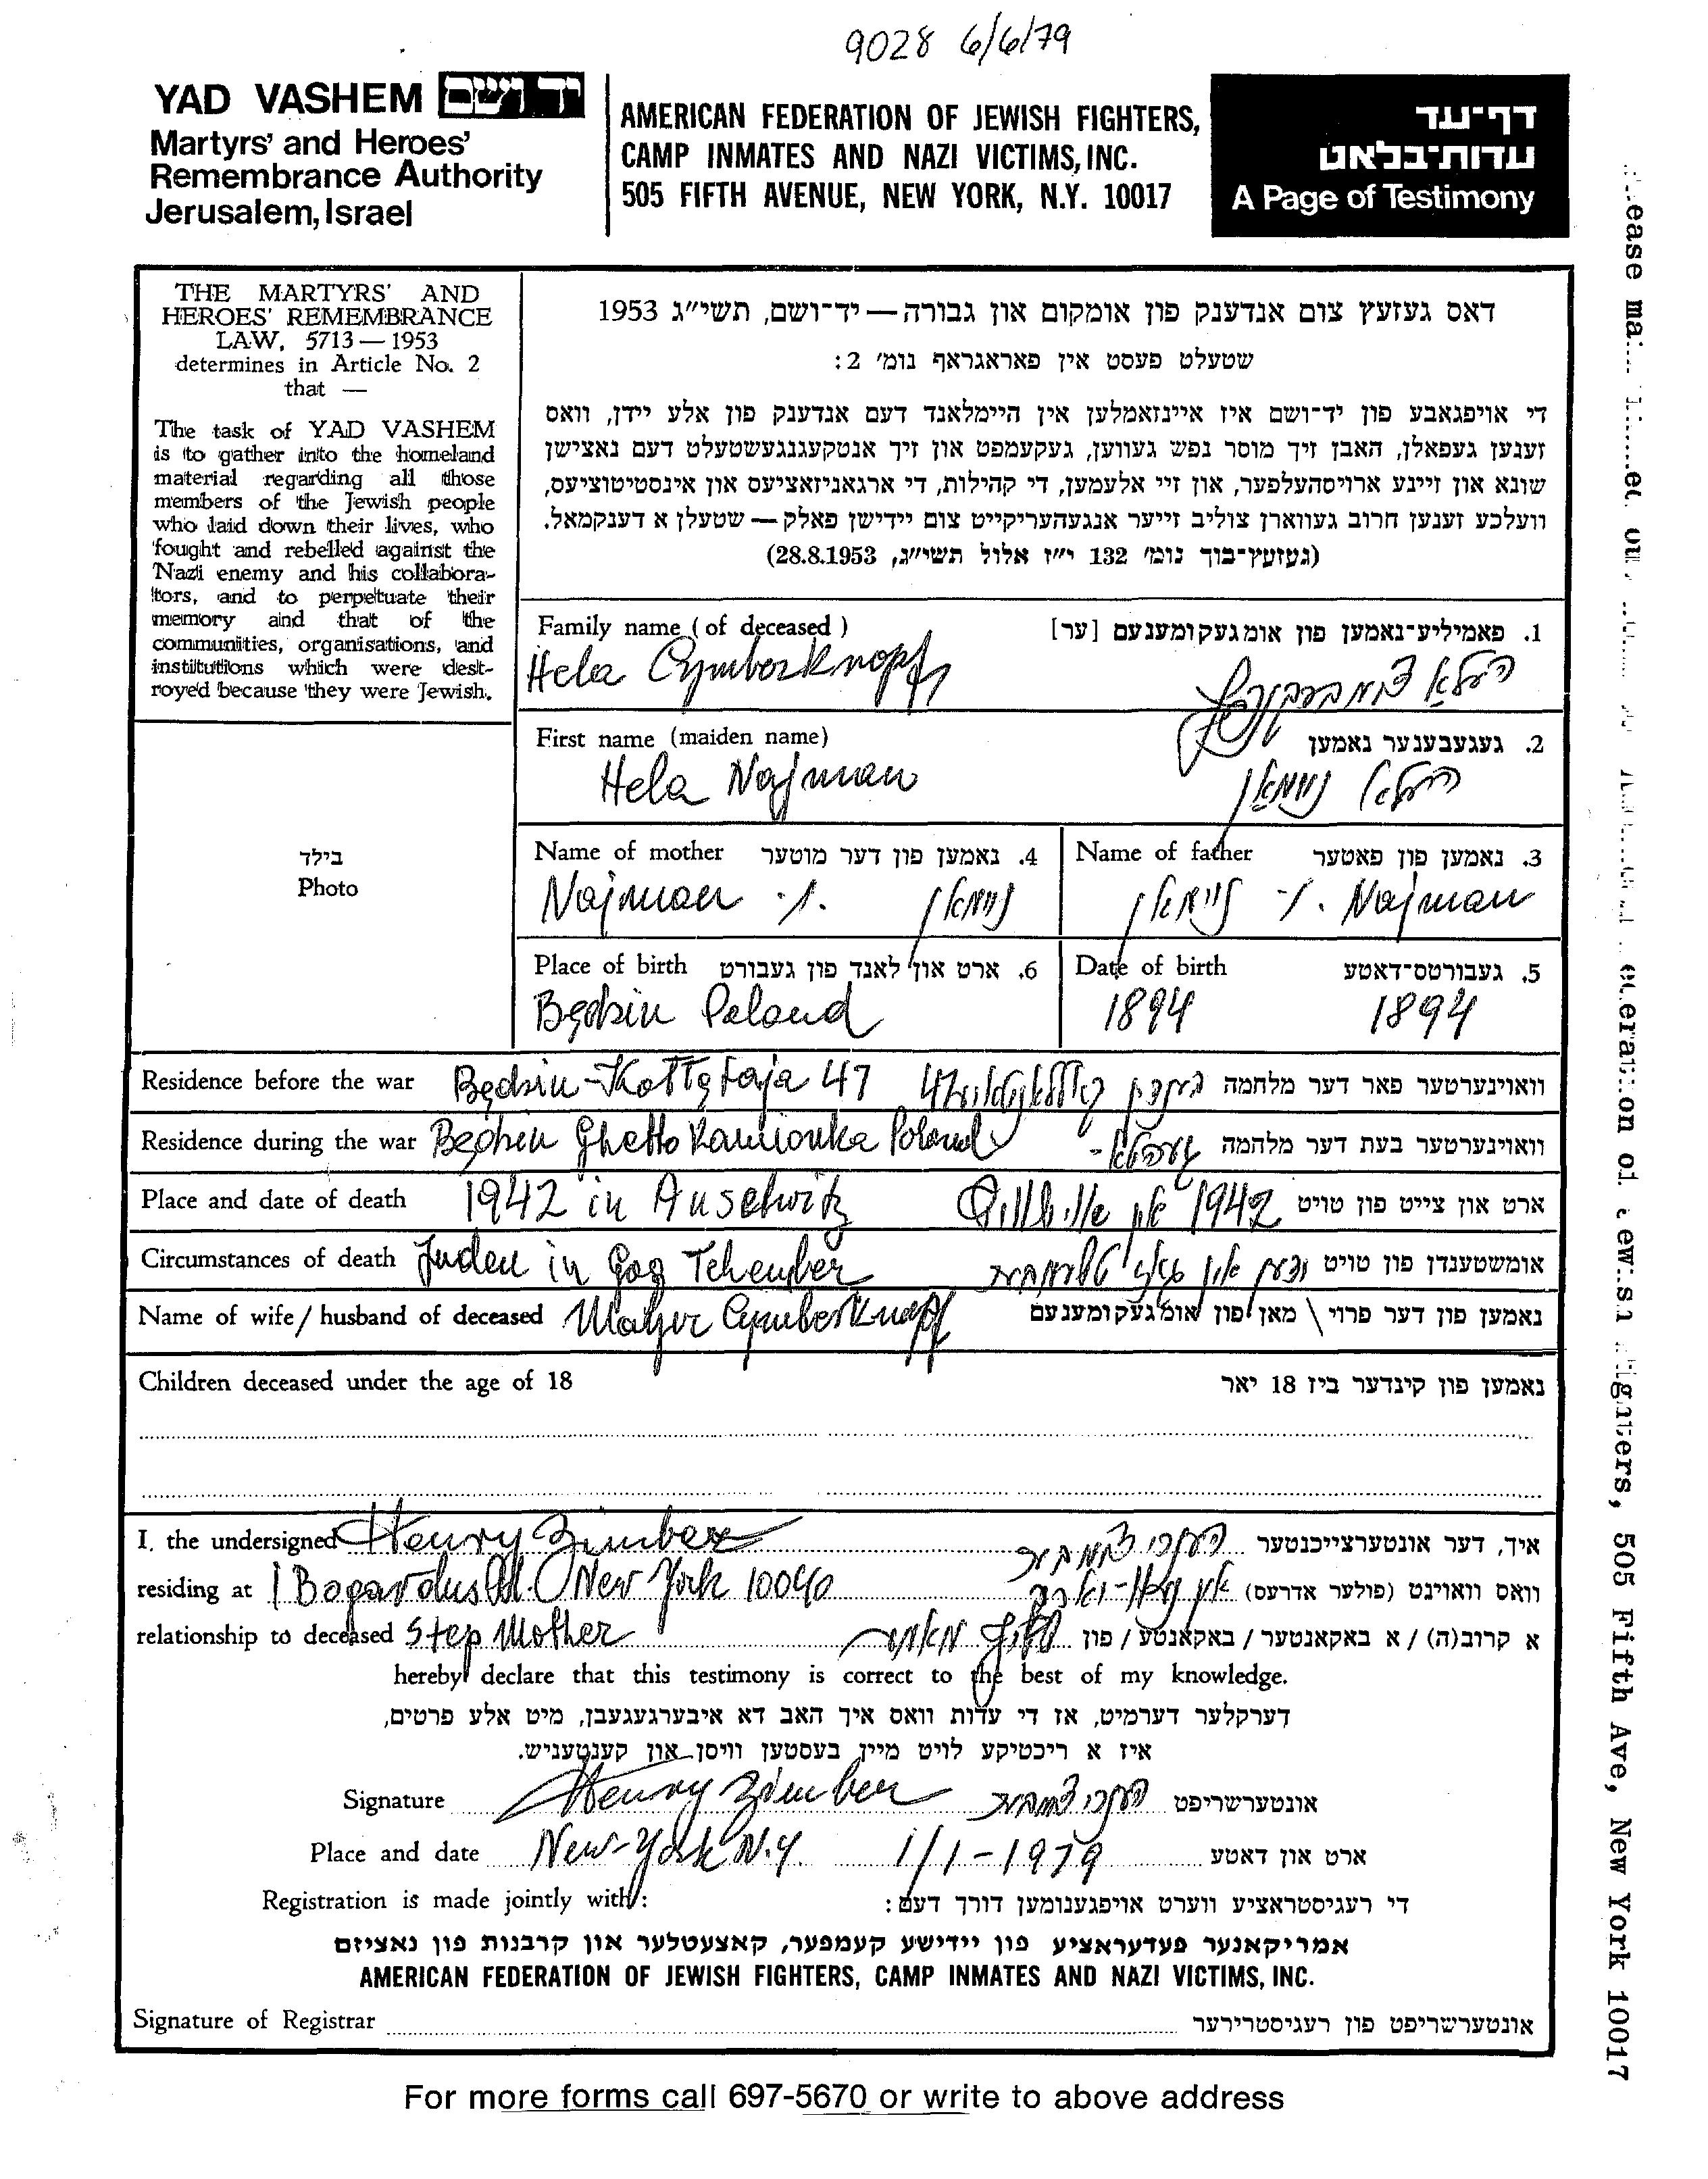 9028 6/6/79
YAD VASHEM יד ושם
Martyrs' and Heroes'
Remembrance Authority
Jerusalem, Israel
AMERICAN FEDERATION OF JEWISH FIGHTERS,
CAMP INMATES AND NAZI VICTIMS, INC.
505 FIFTH AVENUE, NEW YORK, N.Y. 10017
דף־עד
עדות־בלאט
A Page of Testimony
THE MARTYRS' AND
HEROES' REMEMBRANCE
LAW, 5713 — 1953
determines in Article No. 2
that —
The task of YAD VASHEM
is to gather into the homeland
material regarding all those
members of the Jewish people
who laid down their lives, who
fought and rebelled against the
Nazi enemy and his collabora-
tors, and to perpetuate their
memory and that of the
communities, organisations, and
institutions which were dest-
royed because they were Jewish.
דאס געזעץ צום אנדענק פון אומקום און גבורה — יד־ושם, תשי״ג 1953
שטעלט פעסט אין פאראגראף נומ׳ 2:
די אויפגאבע פון יד־ושם איז איינזאמלען אין היימלאנד דעם אנדענק פון אלע יידן, וואס
זענען געפאלן, האבן זיך מוסר נפש געווען, געקעמפט און זיך אנטקעגנגעשטעלט דעם נאצישן
שונא און זיינע ארויסהעלפער, און זיי אלעמען, די קהילות, די ארגאניזאציעס און אינסטיטוציעס,
וועלכע זענען חרוב געווארן צוליב זייער אנגעהעריקייט צום יידישן פאלק — שטעלן א דענקמאל.
(געזעץ־בוך נומ׳ 132 י״ז אלול תשי״ג, 28.8.1953)
Family name (of deceased) 1. פאמיליע־נאמען פון אומגעקומענעם [ער]
Hela Cymberknopf העלא צימבערקנאפף
First name (maiden name) 2. געגעבענער נאמען
Hela Najman העלא ניימאן
בילד
Photo
Name of mother 4. נאמען פון דער מוטער Name of father 3. נאמען פון פאטער
Najman ניימאן ניימאן Najman
Place of birth 6. ארט און לאנד פון געבורט Date of birth 5. געבורטס־דאטע
Będzin Poland 1894 1894
Residence before the war Będzin - Kołłątaja 47 וואוינערטער פאר דער מלחמה
Residence during the war Będzin Ghetto Kamionka Poland וואוינערטער בעת דער מלחמה
Place and date of death 1942 in Auschwitz 1942 ארט און צייט פון טויט
Circumstances of death Juden in Gas אומשטענדן פון טויט
Name of wife / husband of deceased Majer Cymberknopf נאמען פון דער פרוי \ מאן פון אומגעקומענעם
Children deceased under the age of 18 נאמען פון קינדער ביז 18 יאר
I, the undersigned Henry Zimber הענרי צימבער איך, דער אונטערצייכנטער
residing at 1 Bogardus Pl. New York 10040 אין ניו-יארק וואס וואוינט (פולער אדרעס)
relationship to deceased Step Mother א קרוב(ה) / א באקאנטער / באקאנטע / פון
hereby declare that this testimony is correct to the best of my knowledge.
דערקלער דערמיט, אז די עדות וואס איך האב דא איבערגעגעבן, מיט אלע פרטים,
איז א ריכטיקע לויט מיין בעסטען וויסן און קענטעניש.
Signature Henry Zimber הענרי צימבער אונטערשריפט
Place and date New-York N.Y. 1/1-1979 ארט און דאטע
Registration is made jointly with: די רעגיסטראציע ווערט אויפגענומען דורך דעם:
אמריקאנער פעדעראציע פון יידישע קעמפער, קאצעטלער און קרבנות פון נאציזם
AMERICAN FEDERATION OF JEWISH FIGHTERS, CAMP INMATES AND NAZI VICTIMS, INC.
Signature of Registrar אונטערשריפט פון רעגיסטרירער
For more forms call 697-5670 or write to above address
505 Fifth Ave, New York 10017